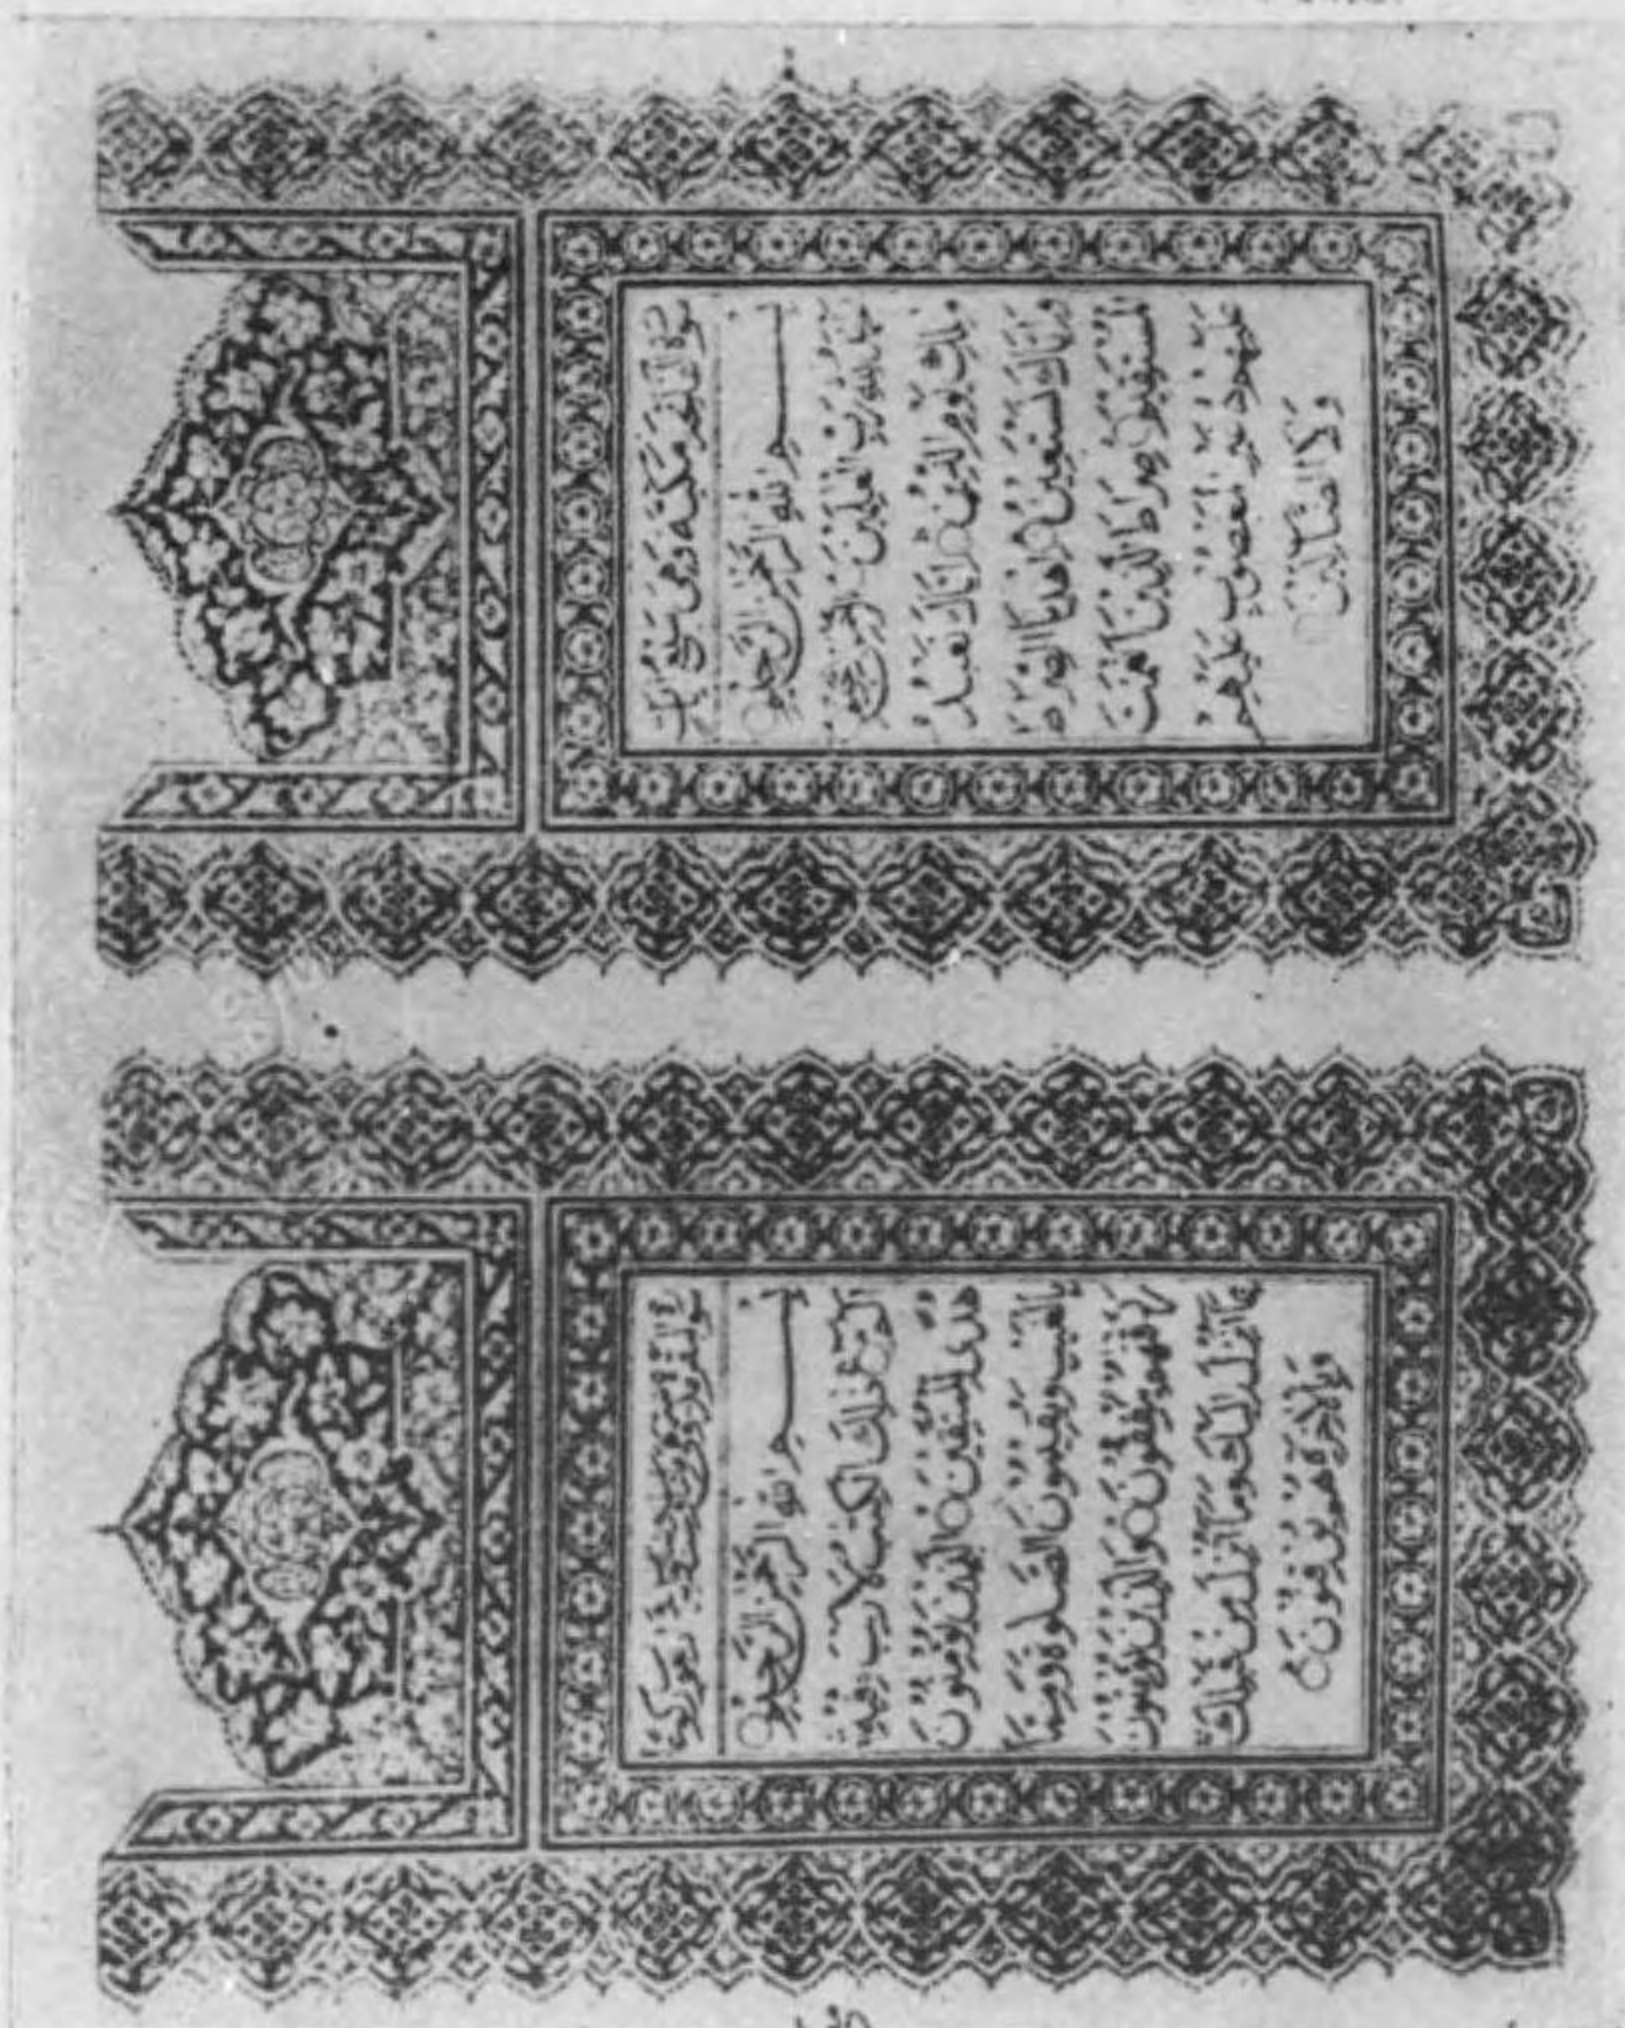 سورة الفاتحة مكية وهى سبع ايات
بِسْمِ اللهِ الرَّحْمٰنِ الرَّحِيْمِ
اَلْحَمْدُ لِلّٰهِ رَبِّ الْعٰلَمِيْنَ الرَّحْمٰنِ الرَّحِيْمِ
مٰلِكِ يَوْمِ الدِّيْنِ اِيَّاكَ نَعْبُدُ
وَاِيَّاكَ نَسْتَعِيْنُ اِهْدِنَا الصِّرَاطَ
الْمُسْتَقِيْمَ صِرَاطَ الَّذِيْنَ اَنْعَمْتَ
عَلَيْهِمْ غَيْرِ الْمَغْضُوْبِ عَلَيْهِمْ
وَلَا الضَّآلِّيْنَ
سورة البقرة
بِسْمِ اللهِ الرَّحْمٰنِ الرَّحِيْمِ
الٓمّٓ ذٰلِكَ الْكِتٰبُ لَا رَيْبَ فِيْهِ
هُدًى لِلْمُتَّقِيْنَ الَّذِيْنَ يُؤْمِنُوْنَ
بِالْغَيْبِ وَيُقِيْمُوْنَ الصَّلٰوةَ وَمِمَّا
رَزَقْنٰهُمْ يُنْفِقُوْنَ وَالَّذِيْنَ يُؤْمِنُوْنَ
بِمَآ اُنْزِلَ اِلَيْكَ وَمَآ اُنْزِلَ مِنْ قَبْلِكَ
وَبِالْاٰخِرَةِ هُمْ يُوْقِنُوْنَ